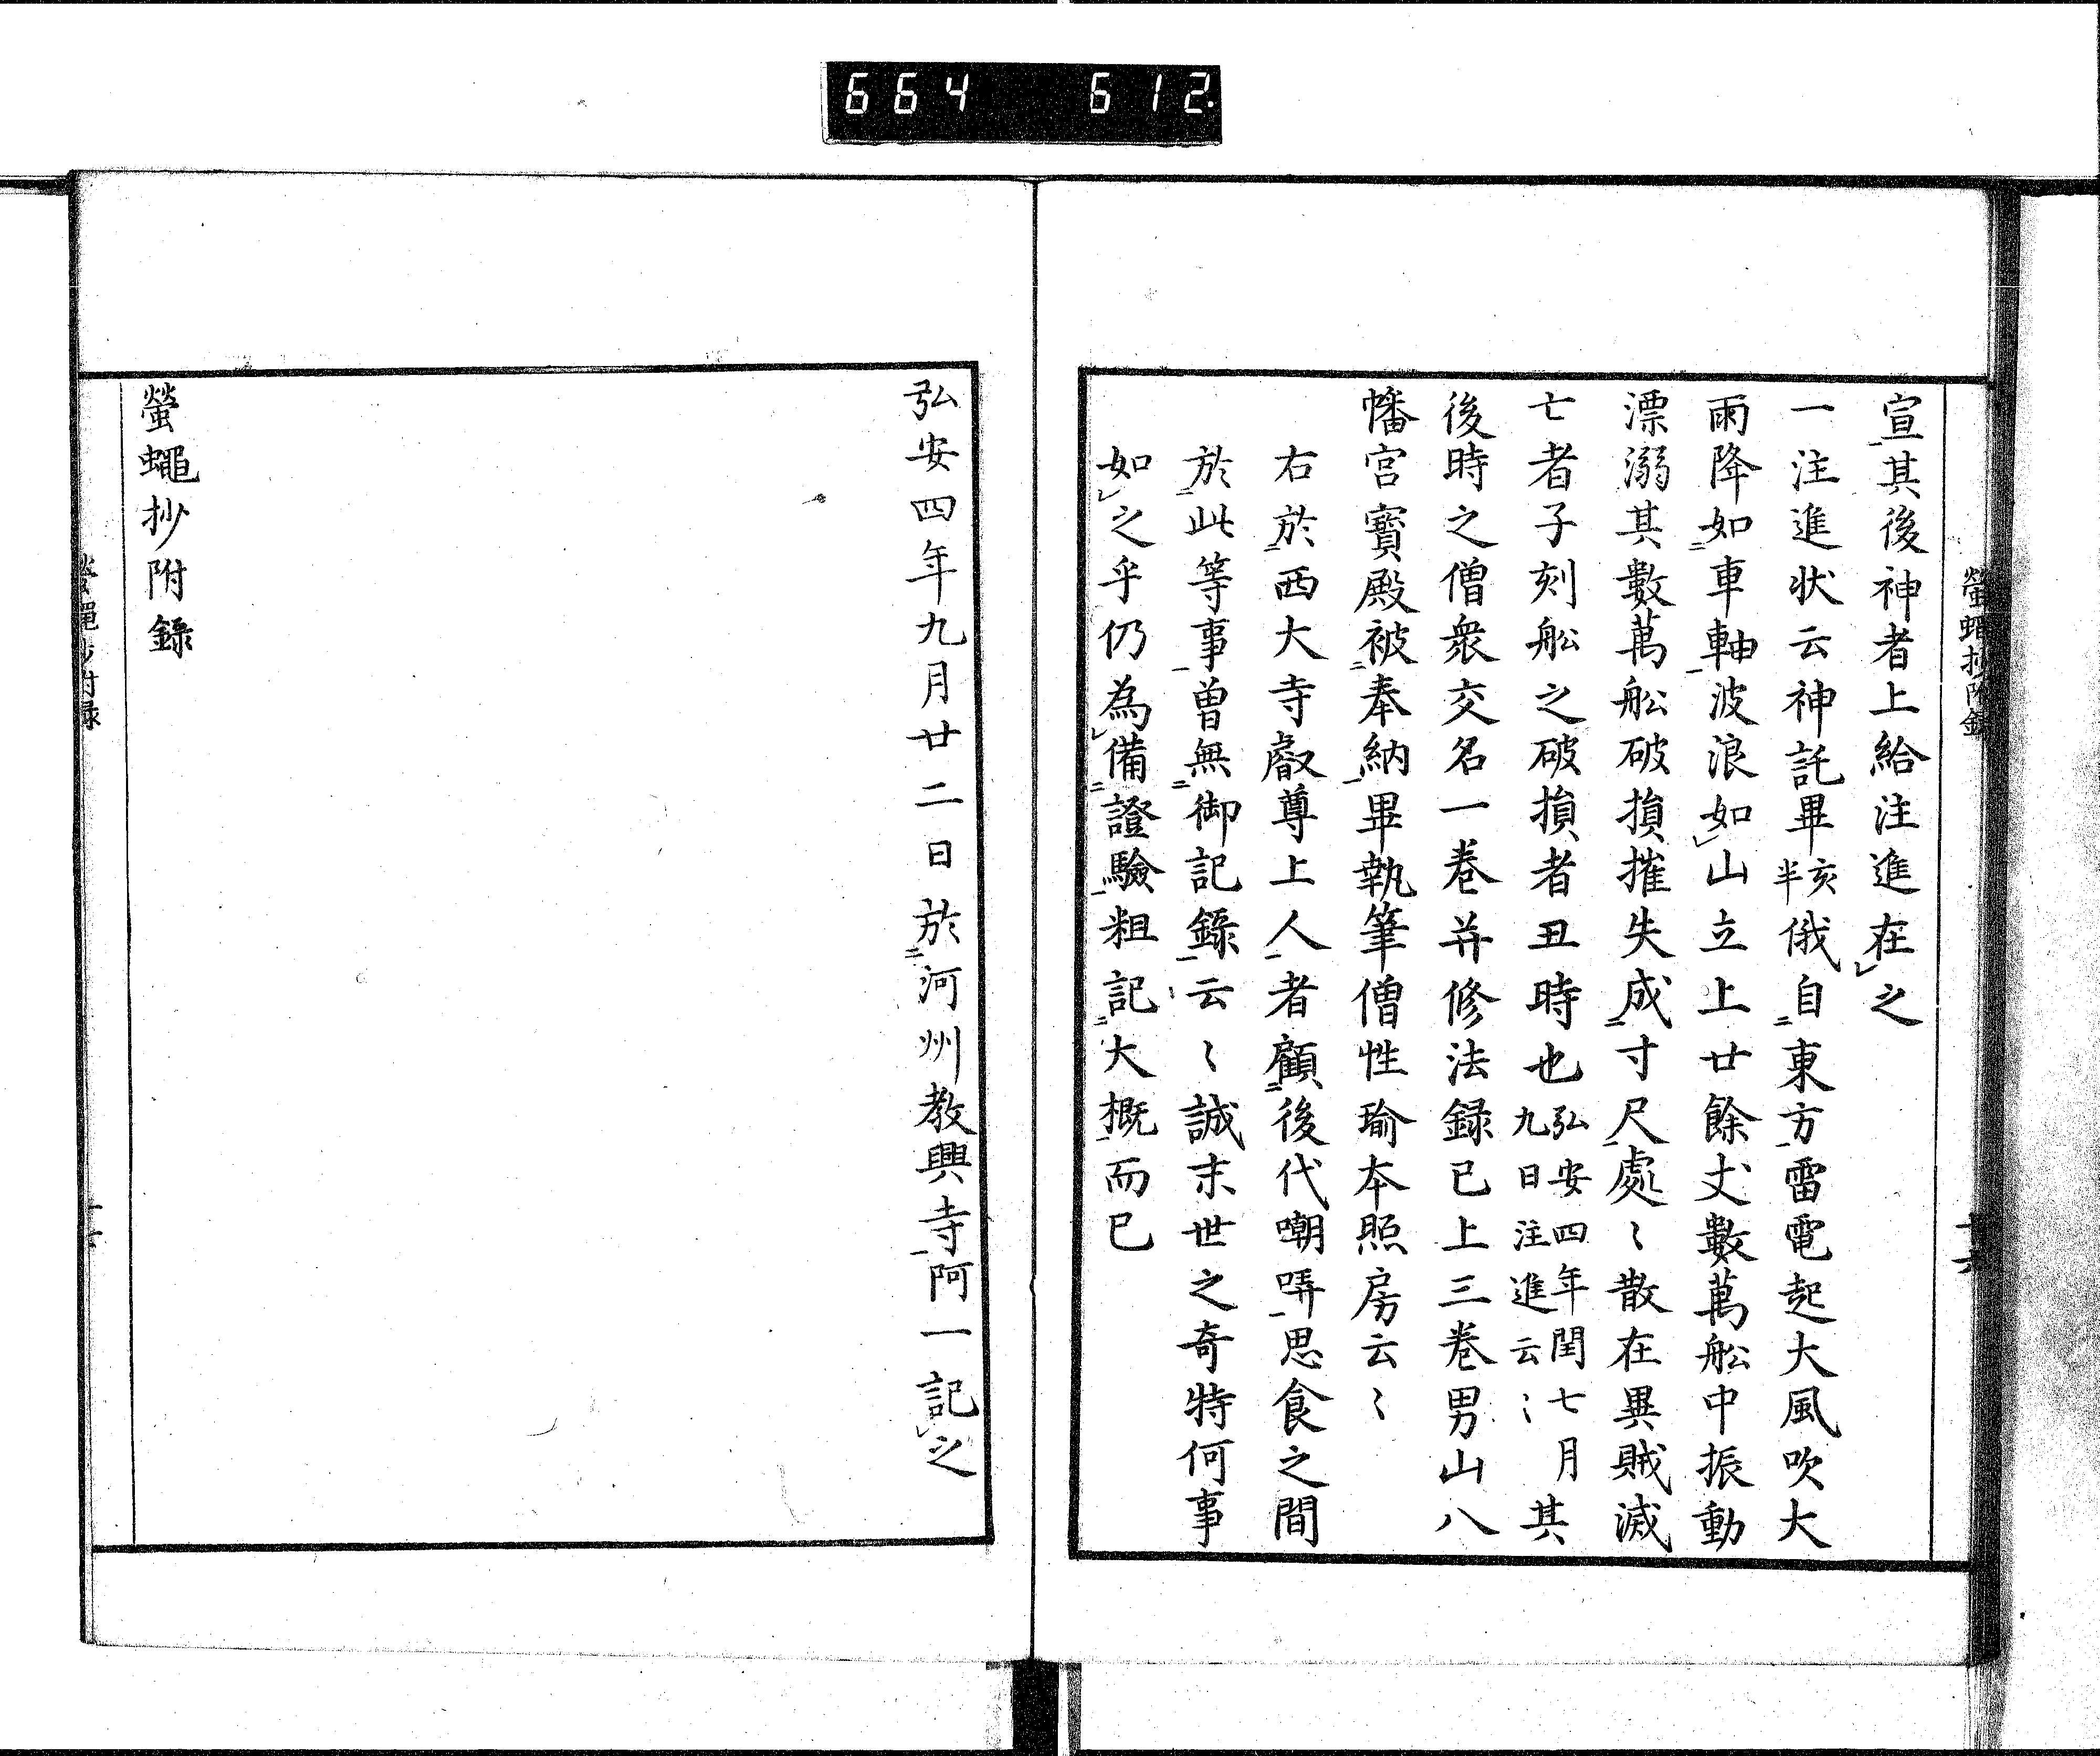 664 612.
螢蠅抄附錄
十六
宣其後神者上給注進在之
一注進状云神託畢亥半俄自東方雷電起大風吹大
雨降如車軸波浪如山立上廿餘丈數萬舩中振動
漂溺其數萬舩破損摧失成寸尺處〻散在異賊滅
亡者子刻舩之破損者丑時也弘安四年閏七月九日注進云〻其
後時之僧衆交名一巻并修法録已上三巻男山八
幡宮寶殿被奉納畢執筆僧性瑜本照房云〻
右於西大寺叡尊上人者顧後代嘲哢思食之間
於此等事曽無御記錄云〻誠末世之奇特何事
如之乎仍為備證驗粗記大概而已
弘安四年九月廿二日於河州教興寺阿一記之
螢蠅抄附錄